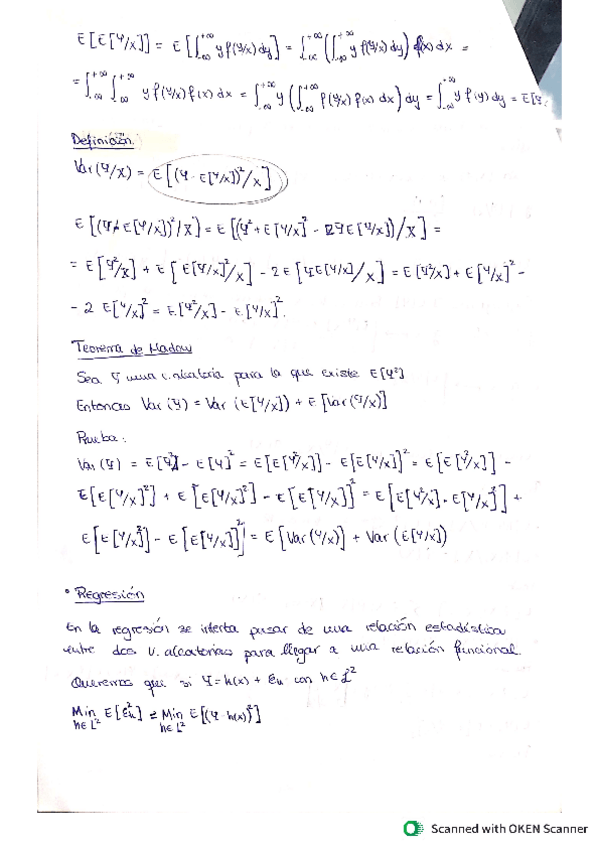 E[E[Y/X]] = E[∫_{-∞}^{+∞} y f(y/x) dy] = ∫_{-∞}^{+∞} (∫_{-∞}^{+∞} y f(y/x) dy) f(x) dx =
= ∫_{-∞}^{+∞} ∫_{-∞}^{+∞} y f(y/x) f(x) dx = ∫_{-∞}^{+∞} y (∫_{-∞}^{+∞} f(y/x) f(x) dx) dy = ∫_{-∞}^{+∞} y f(y) dy = E[Y
Definición.
Var(Y/X) = E[(Y - E[Y/X])²/X]
E[(Y - E[Y/X])²/X] = E[(Y² + E[Y/X]² - 2YE[Y/X])/X] =
= E[Y²/X] + E[E[Y/X]²/X] - 2E[YE[Y/X]/X] = E[Y²/X] + E[Y/X]² -
- 2 E[Y/X]² = E[Y²/X] - E[Y/X]².
Teorema de Madow
Sea Y una v. aleatoria para la que existe E[Y²]
Entonces Var(Y) = Var(E[Y/X]) + E[Var(Y/X)]
Prueba:
Var(Y) = E[Y²] - E[Y]² = E[E[Y²/X]] - E[E[Y/X]]² = E[E[Y²/X]] -
E[E[Y/X]²] + E[E[Y/X]²] - E[E[Y/X]]² = E[E[Y²/X] - E[Y/X]²] +
E[E[Y/X]²] - E[E[Y/X]]² = E[Var(Y/X)] + Var(E[Y/X])
• Regresión
En la regresión se intenta pasar de una relación estadística
entre dos v. aleatorias para llegar a una relación funcional.
Queremos que si Y = h(x) + εh con h ∈ L²
Min h∈L² E[εh²] = Min h∈L² E[(Y - h(x))²]
Scanned with OKEN Scanner